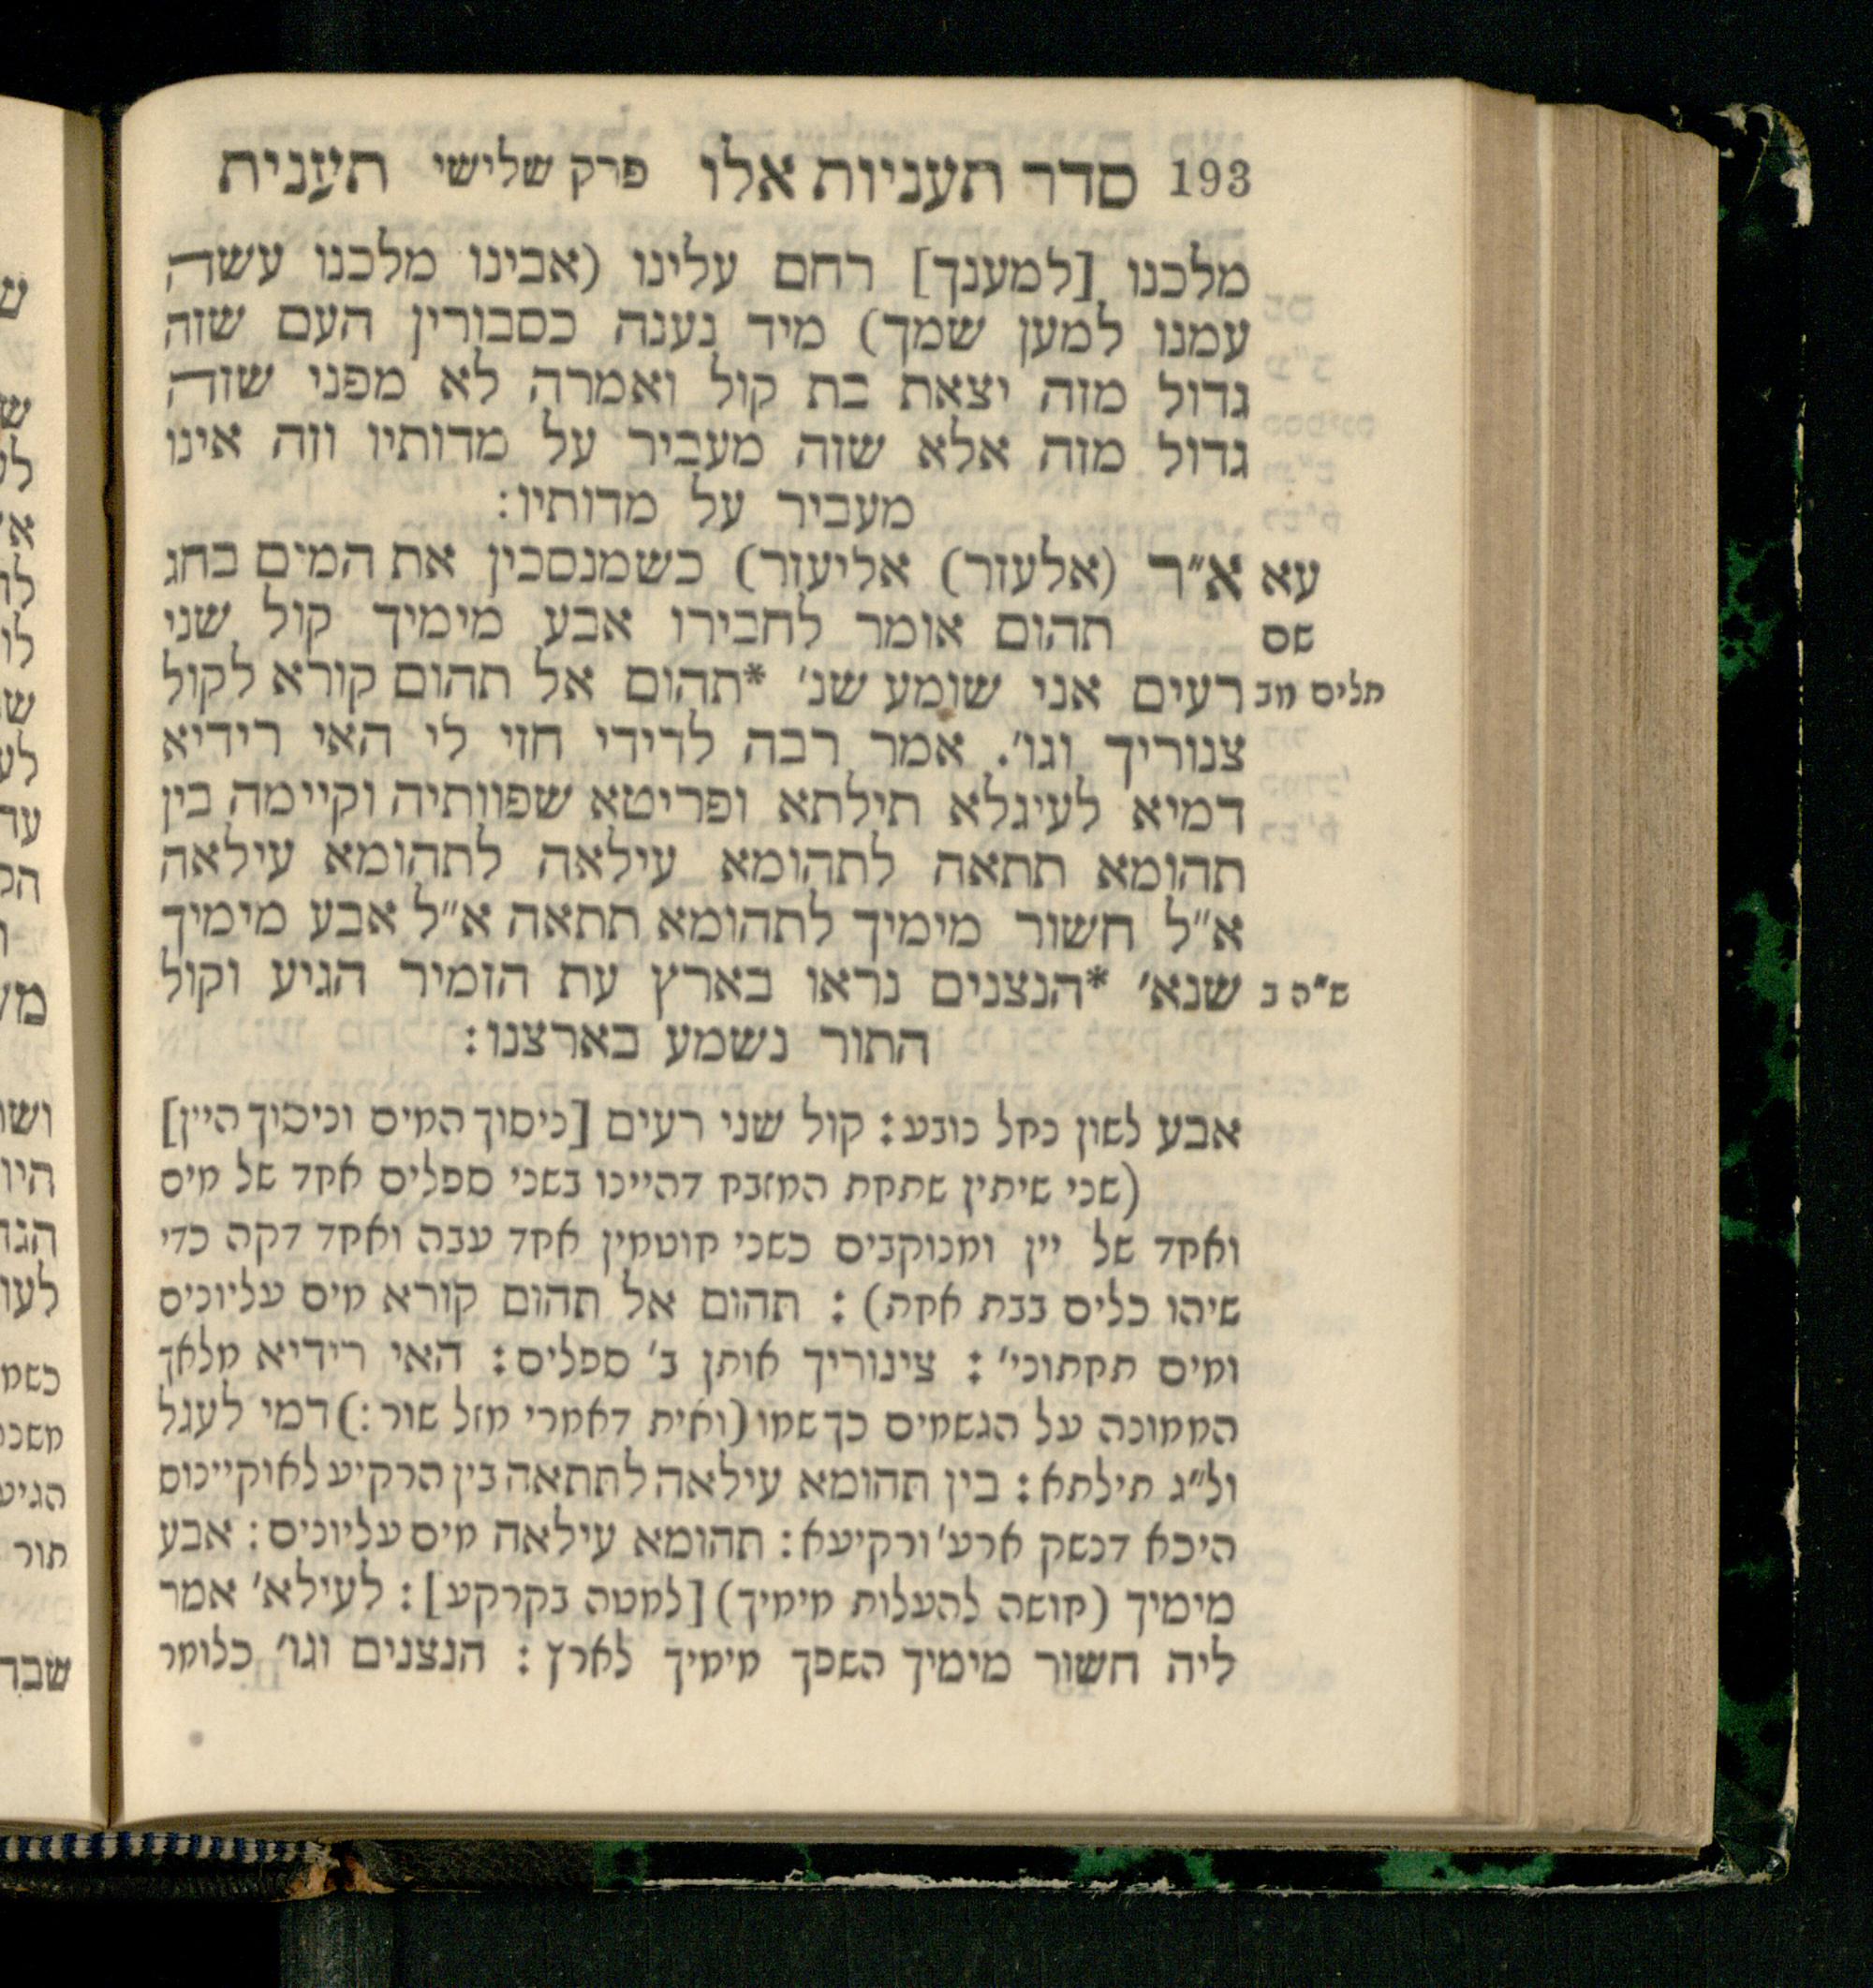 193 סדר תעניות אלו פרק שלישי תענית
מלכנו [למענך] רחם עלינו (אבינו מלכנו עשה
עמנו למען שמך) מיד נענה כסבורין העם שזה
גדול מזה יצאת בת קול ואמרה לא מפני שזה
גדול מזה אלא שזה מעביר על מדותיו וזה אינו
מעביר על מדותיו:
עא א״ר (אלעזר) אליעזר) כשמנסכין את המים בחג
שם תהום אומר לחבירו אבע מימיך קול שני
תלים מב רעים אני שומע שנ׳ *תהום אל תהום קורא לקול
צנוריך וגו׳. אמר רבה לדידי חזי לי האי רידיא
דמיא לעיגלא תילתא ופריטא שפוותיה וקיימה בין
תהומא תתאה לתהומא עילאה לתהומא עילאה
א״ל חשור מימיך לתהומא תתאה א״ל אבע מימיך
ש״ה ב שנא׳ *הנצנים נראו בארץ עת הזמיר הגיע וקול
התור נשמע בארצנו:
אבע לשון נחל נובע: קול שני רעים [ניסוך המים וניסוך היין]
(שני שיתין שתחת המזבח דהיינו בשני ספלים אחד של מים
ואחד של יין ומנוקבים כשני חוטמין אחד עבה ואחד דקה כדי
שיהו כלים בבת אחת): תהום אל תהום קורא מים עליונים
ומים תחתוני׳: צינוריך אותן ב׳ ספלים: האי רידיא מלאך
הממונה על הגשמים כך שמו (ואית דאמרי מזל שור:) דמי לעגל
ול״ג תילתא: בין תהומא עילאה לתתאה בין הרקיע לאוקיינוס
היכא דנשק ארע׳ ורקיעא: תהומא עילאה מים עליונים: אבע
מימיך (חושה להעלות מימיך) [למטה בקרקע]: לעילא׳ אמר
ליה חשור מימיך השפך מימיך לארץ: הנצנים וגו׳ כלומר